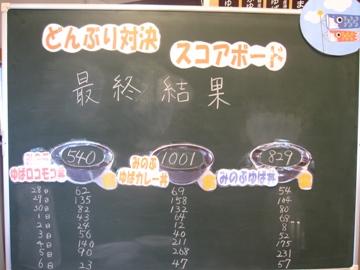 どんぶり対決
スコアボード
最終結果
540 1001 829
みのぶゆばカレー丼 みのぶゆば丼
ゆばロコモコ丼
28日 62 69 54
29日 135 158 104
30日 82 132 80
1日 43 64 68
2日 24 12 8
3日 56 40 52
4日 140 211 175
5日 90 268 231
6日 23 47 57